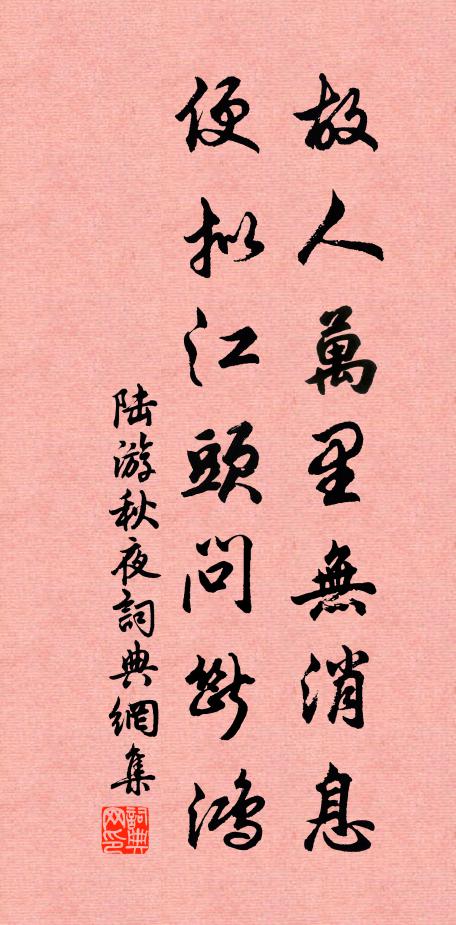 故人萬里無消息
便拟江頭問断鴻
陆游秋夜詞典網集
詞典网印